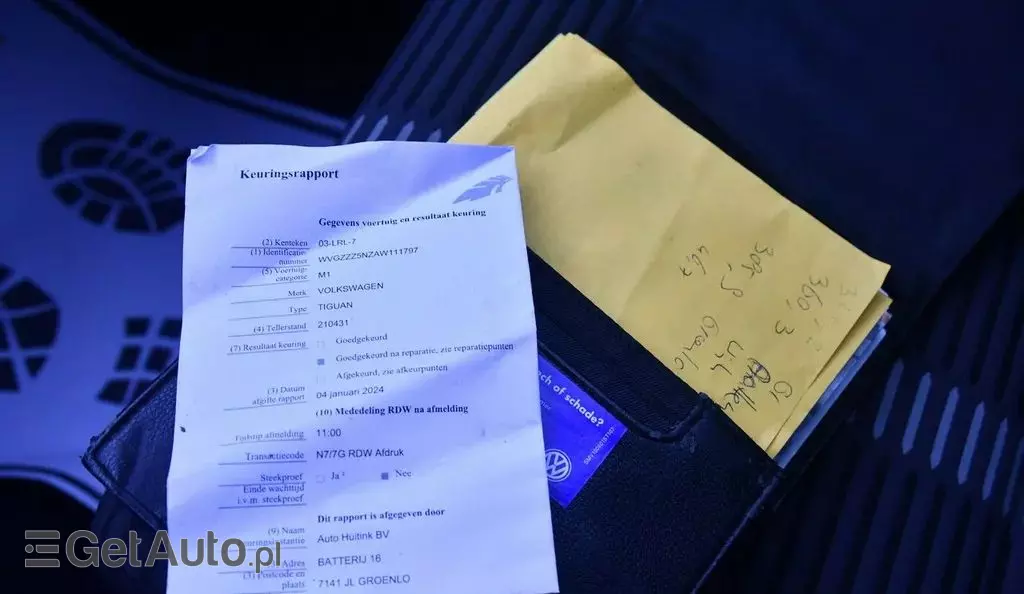 Keuringsrapport
Gegevens voertuig en resultaat keuring
(2) Kenteken 03-LRL-7
(1) Identificatie-
nummer WVGZZZ5NZAW111797
(5) Voertuig-
categorie M1
Merk VOLKSWAGEN
Type TIGUAN
(4) Tellerstand 210431
(7) Resultaat keuring Goedgekeurd
Goedgekeurd na reparatie, zie reparatiepunten
Afgekeurd, zie afkeurpunten
(3) Datum
afgifte rapport 04 januari 2024
(10) Mededeling RDW na afmelding
Tijdstip afmelding 11:00
Transactiecode N7/7G RDW Afdruk
Steekproef Ja ² Nee
Einde wachttijd
i.v.m. steekproef
Dit rapport is afgegeven door
(9) Naam
keuringsinstantie Auto Huitink BV
Adres BATTERIJ 16
(3) Postcode en
plaats 7141 JL GROENLO
ech of schade?
360,3
GetAuto.pl